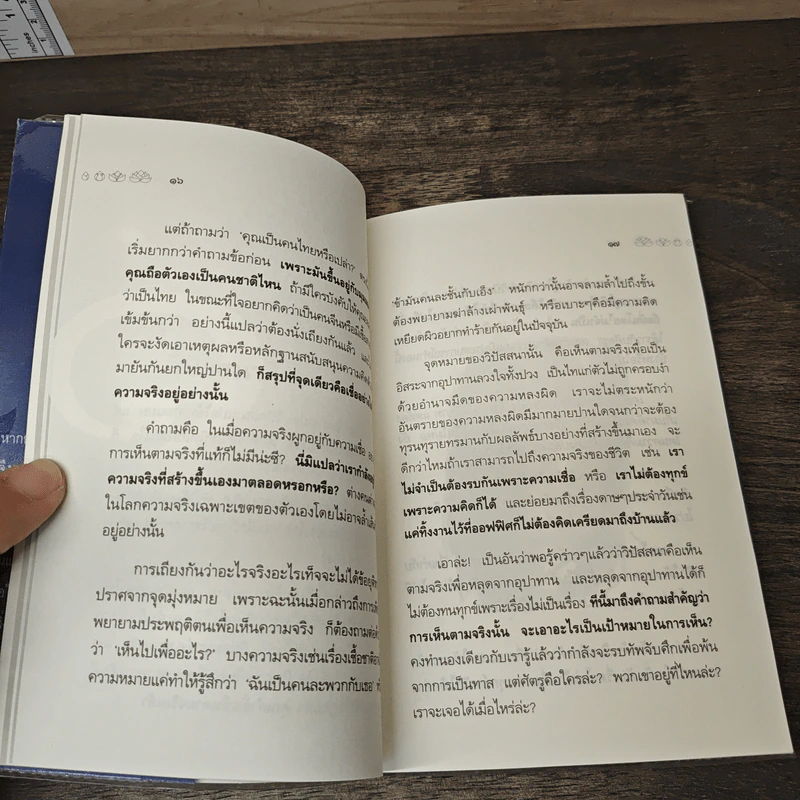 inches
๑๖
แต่ถ้าถามว่า 'คุณเป็นคนไทยหรือเปล่า?'
เริ่มยากกว่าคำถามข้อก่อน เพราะมันขึ้นอยู่กับ
คุณถือตัวเองเป็นคนชาติไหน ถ้ามีใครบังคับให้คุณ
ว่าเป็นไทย ในขณะที่ใจอยากคิดว่าเป็นคนจีนหรือ
เข้มข้นกว่า อย่างนี้แปลว่าต้องนั่งเถียงกันแล้ว
ใครจะงัดเอาเหตุผลหรือหลักฐานสนับสนุนความ
มายันกันยกใหญ่ปานใด ก็สรุปที่จุดเดียวคือเชื่ออย่าง
ความจริงอยู่อย่างนั้น
คำถามคือ ในเมื่อความจริงผูกอยู่กับความเชื่อ
การเห็นตามจริงที่แท้ก็ไม่มีน่ะซี? นี่มิแปลว่าเรากำลัง
ความจริงที่สร้างขึ้นเองมาตลอดหรอกหรือ? ต่างคน
ในโลกความจริงเฉพาะเขตของตัวเองโดยไม่อาจล้ำ
อยู่อย่างนั้น
การเถียงกันว่าอะไรจริงอะไรเท็จจะไม่ได้ข้อยุติ
ปราศจากจุดมุ่งหมาย เพราะฉะนั้นเมื่อกล่าวถึงการ
พยายามประพฤติตนเพื่อเห็นความจริง ก็ต้องถาม
ว่า 'เห็นไปเพื่ออะไร?' บางความจริงเช่นเรื่องเชื้อชาติ
ความหมายแค่ทำให้รู้สึกว่า 'ฉันเป็นคนละพวกกับเธอ'
๑๗
'ข้ามันคนละชั้นกับเอ็ง' หนักกว่านั้นอาจลามล้ำไปถึงขั้น
ต้องพยายามฆ่าล้างเผ่าพันธุ์ หรือเบาะๆคือมีความคิด
เหยียดผิวอยากทำร้ายกันอยู่ในปัจจุบัน
จุดหมายของวิปัสสนานั้น คือเห็นตามจริงเพื่อเป็น
อิสระจากอุปาทานลวงใจทั้งปวง เป็นไทแก่ตัวไม่ถูกครอบงำ
ด้วยอำนาจมืดของความหลงผิด เราจะไม่ตระหนักว่า
อันตรายของความหลงผิดมีมากมายปานใดจนกว่าจะต้อง
ทุรนทุรายทรมานกับผลลัพธ์บางอย่างที่สร้างขึ้นมาเอง จะ
ดีกว่าไหมถ้าเราสามารถไปถึงความจริงของชีวิต เช่น เรา
ไม่จำเป็นต้องรบกันเพราะความเชื่อ หรือ เราไม่ต้องทุกข์
เพราะความคิดก็ได้ และย่อยมาถึงเรื่องดาษๆประจำวันเช่น
แค่ทิ้งงานไว้ที่ออฟฟิศก็ไม่ต้องคิดเครียดมาถึงบ้านแล้ว
เอาล่ะ! เป็นอันว่าพอรู้คร่าวๆแล้วว่าวิปัสสนาคือเห็น
ตามจริงเพื่อหลุดจากอุปาทาน และหลุดจากอุปาทานได้ก็
ไม่ต้องทนทุกข์เพราะเรื่องไม่เป็นเรื่อง ทีนี้มาถึงคำถามสำคัญว่า
การเห็นตามจริงนั้น จะเอาอะไรเป็นเป้าหมายในการเห็น?
คงทำนองเดียวกับเรารู้แล้วว่ากำลังจะรบทัพจับศึกเพื่อพ้น
จากการเป็นทาส แต่ศัตรูคือใครล่ะ? พวกเขาอยู่ที่ไหนล่ะ?
เราจะเจอได้เมื่อไหร่ล่ะ?